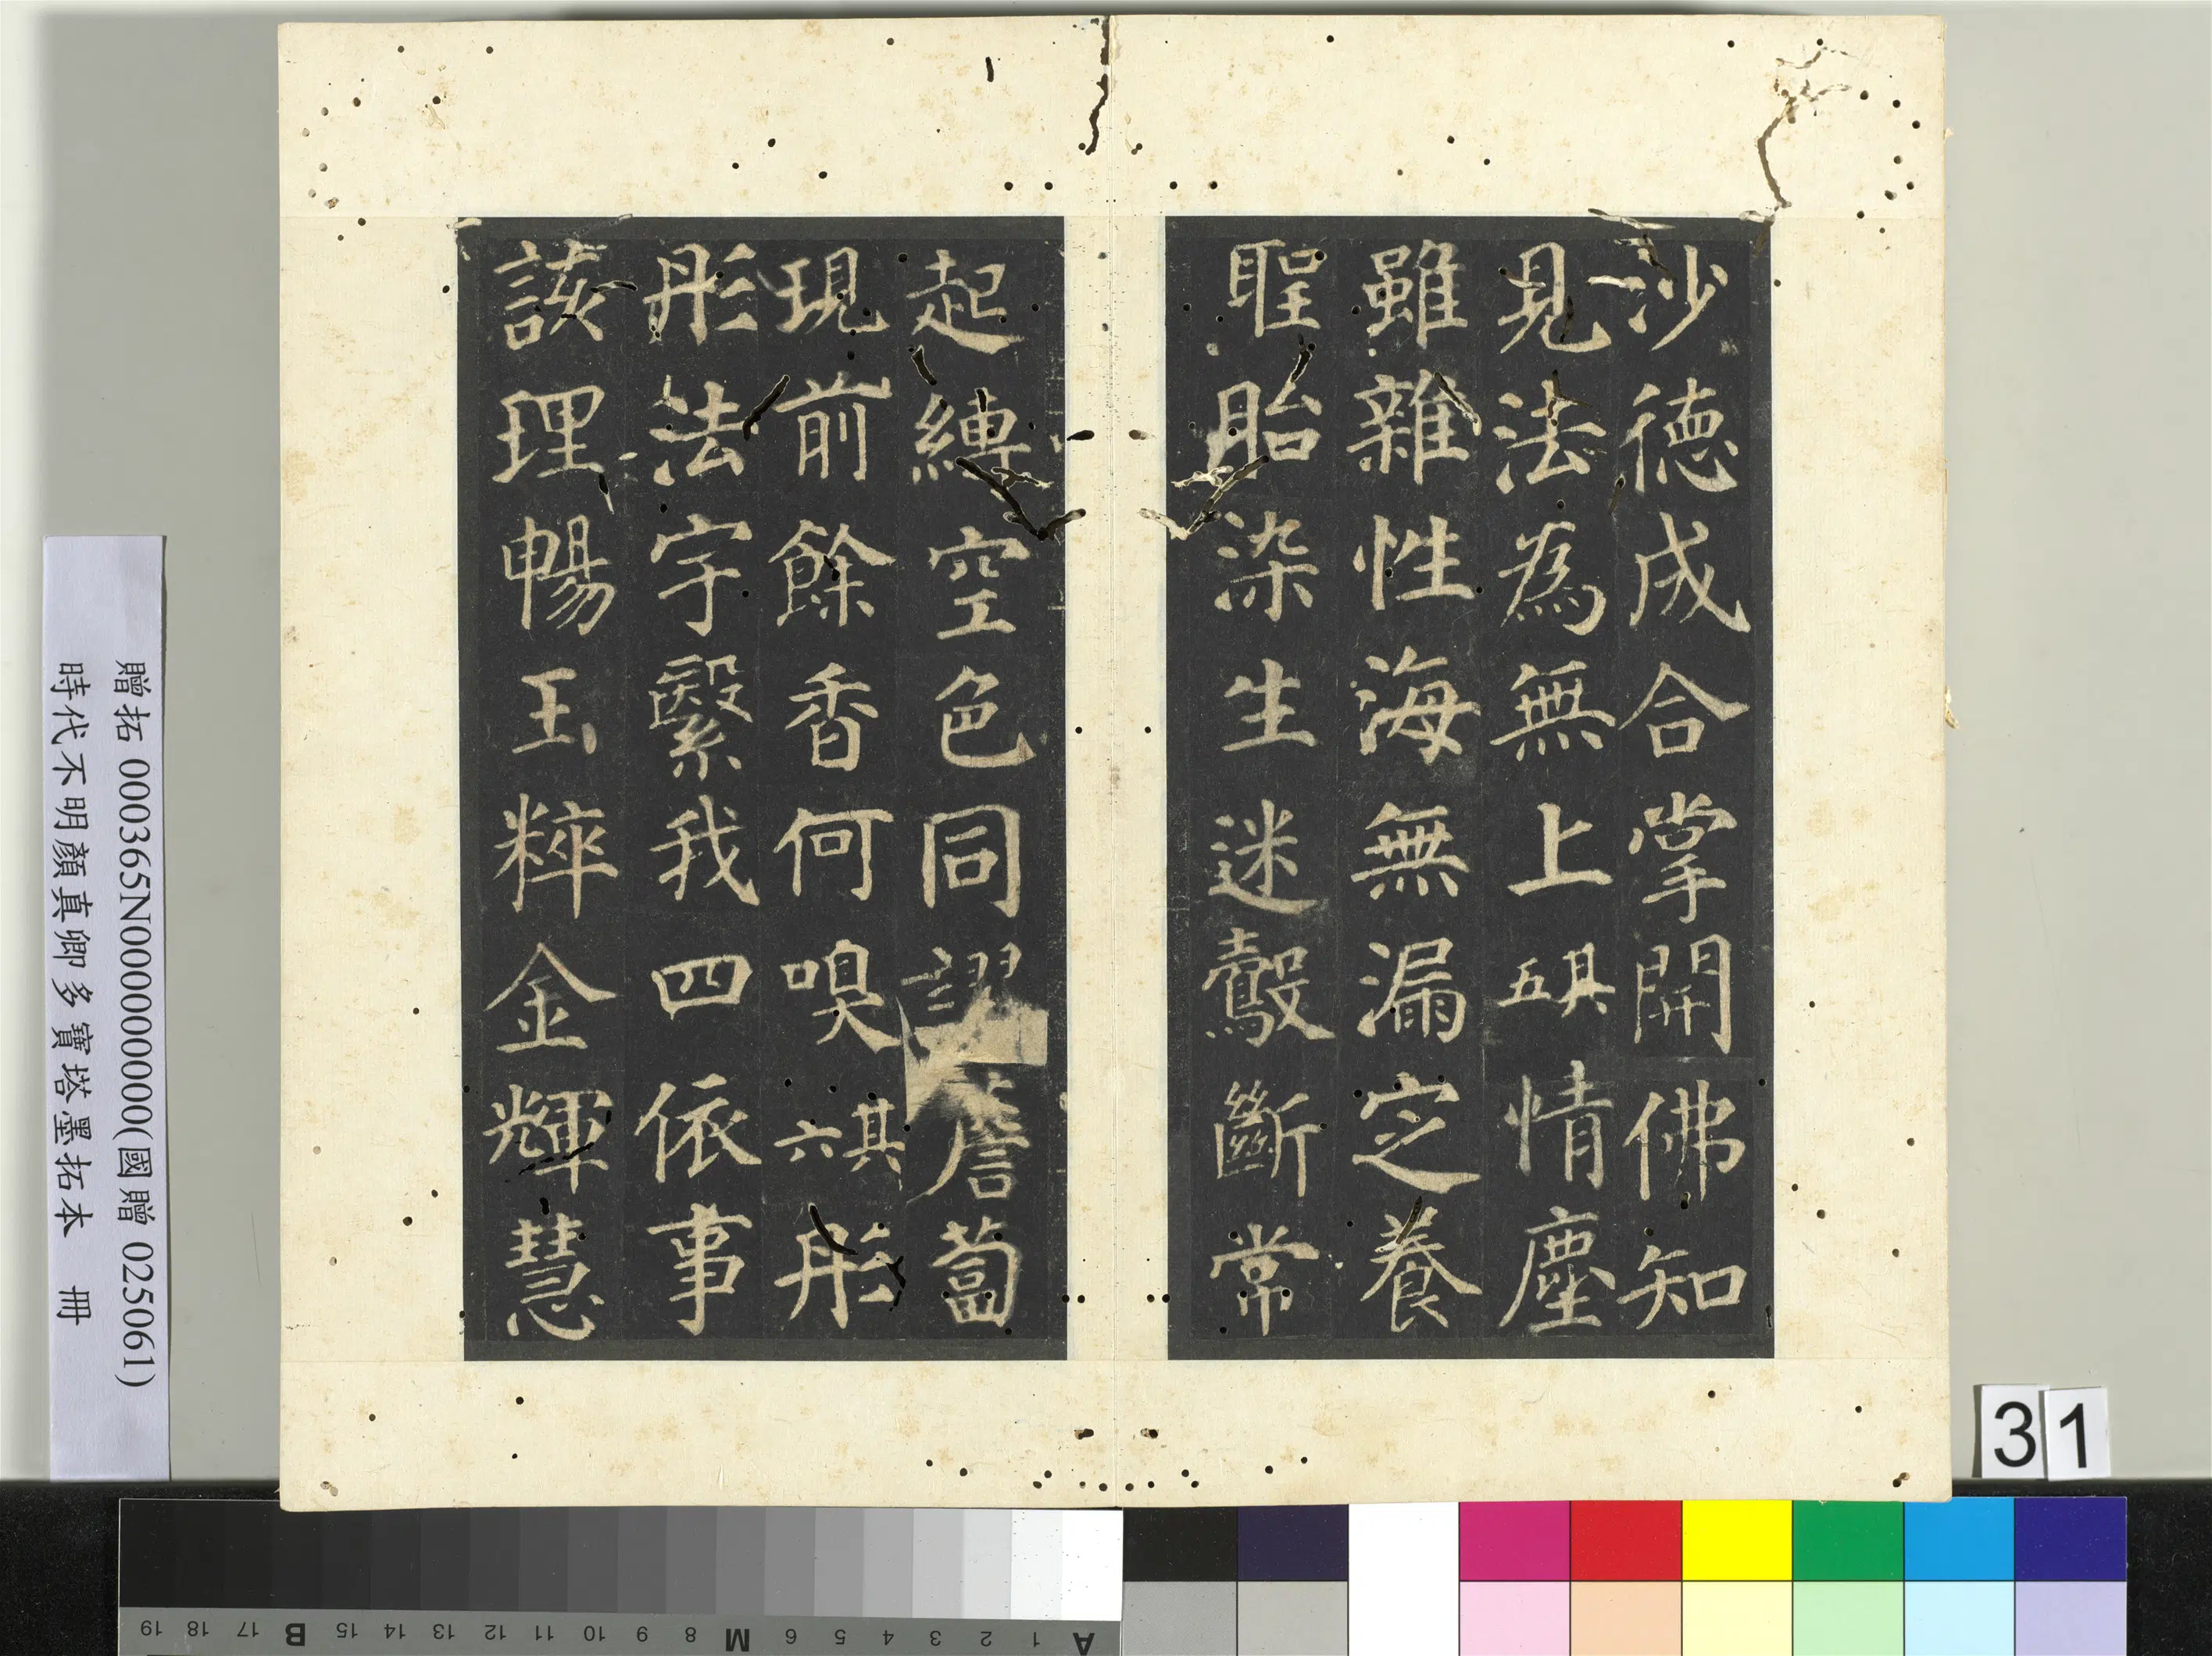 沙德成合掌開佛知
見法為無上其五情塵
雖雜性海無漏定養
聖胎染生迷鷇斷常
起縛空色同謬薝蔔
現前餘香何嗅其六彤
彤法宇繄我四依事
該理暢玉粹金輝慧
贈拓 000365N000000000(國贈 025061)
時代不明顏真卿多寶塔墨拓本 冊
31
A 1 2 3 4 5 6 M 8 9 10 11 12 13 14 15 B 17 18 19